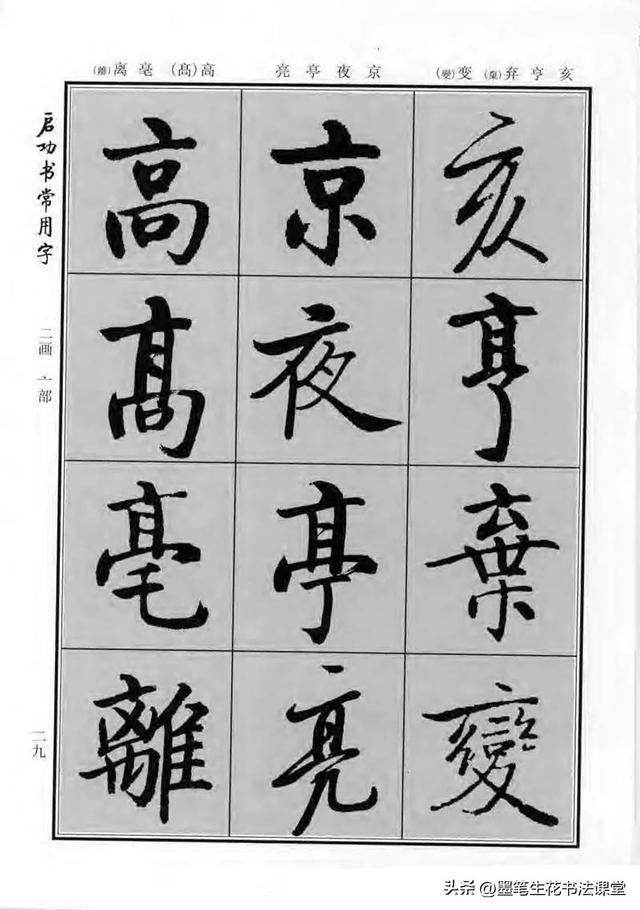 亥亨弃(棄)变(變)
京夜亭亮
高(髙)毫离(離)
亥
亨
棄
變
京
夜
亭
亮
高
髙
毫
離
启功书常用字
二画 亠部
二九
头条 @墨笔生花书法课堂